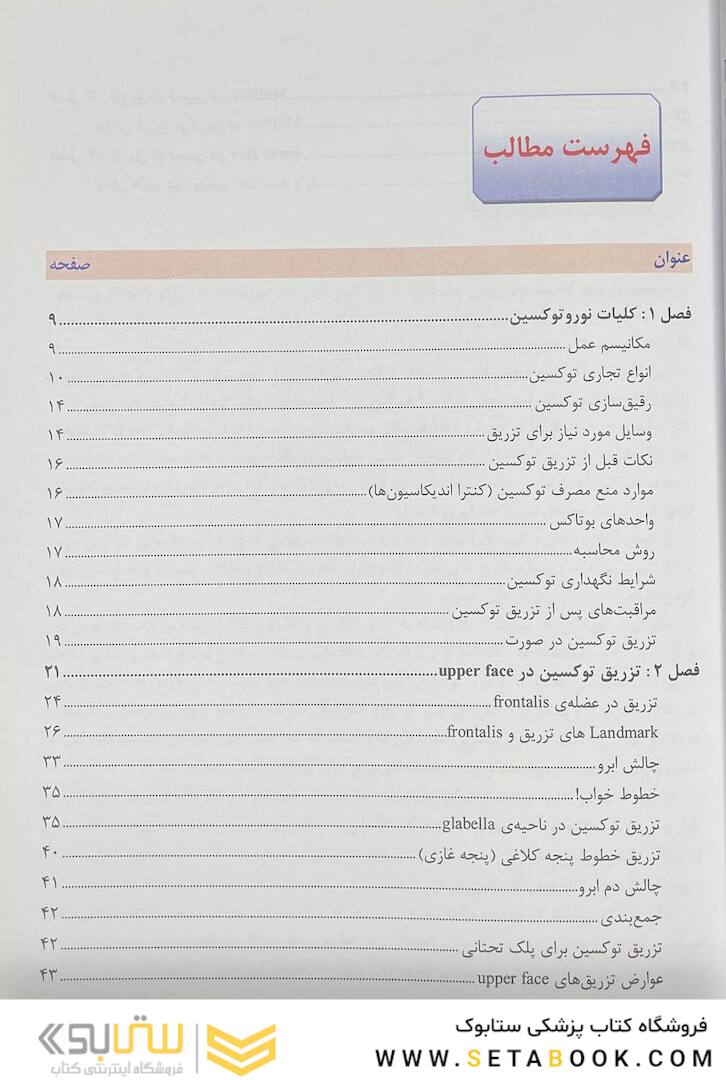 فهرست مطالب
عنوان صفحه
فصل ۱: کلیات نوروتوکسین ۹
مکانیسم عمل ۹
انواع تجاری توکسین ۱۰
رقیق‌سازی توکسین ۱۴
وسایل مورد نیاز برای تزریق ۱۴
نکات قبل از تزریق توکسین ۱۶
موارد منع مصرف توکسین (کنترا اندیکاسیون‌ها) ۱۶
واحدهای بوتاکس ۱۷
روش محاسبه ۱۷
شرایط نگهداری توکسین ۱۸
مراقبت‌های پس از تزریق توکسین ۱۸
تزریق توکسین در صورت ۱۹
فصل ۲: تزریق توکسین در upper face ۲۱
تزریق در عضله‌ی frontalis ۲۴
Landmark های تزریق و frontalis ۲۶
چالش ابرو ۳۳
خطوط خواب! ۳۵
تزریق توکسین در ناحیه‌ی glabella ۳۵
تزریق خطوط پنجه کلاغی (پنجه غازی) ۴۰
چالش دم ابرو ۴۱
جمع‌بندی ۴۲
تزریق توکسین برای پلک تحتانی ۴۲
عوارض تزریق‌های upper face ۴۳
فروشگاه کتاب پزشکی ستابوک
WWW.SETABOOK.COM
ستابوک
فروشگاه اینترنتی کتاب